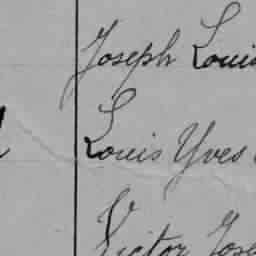 Joseph Louis
Louis Yves
Victor Jose